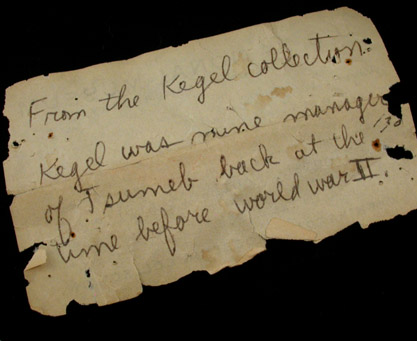 From the Kegel collection.
Kegel was mine manager
of Tsumeb back at the '30
time before world war II.